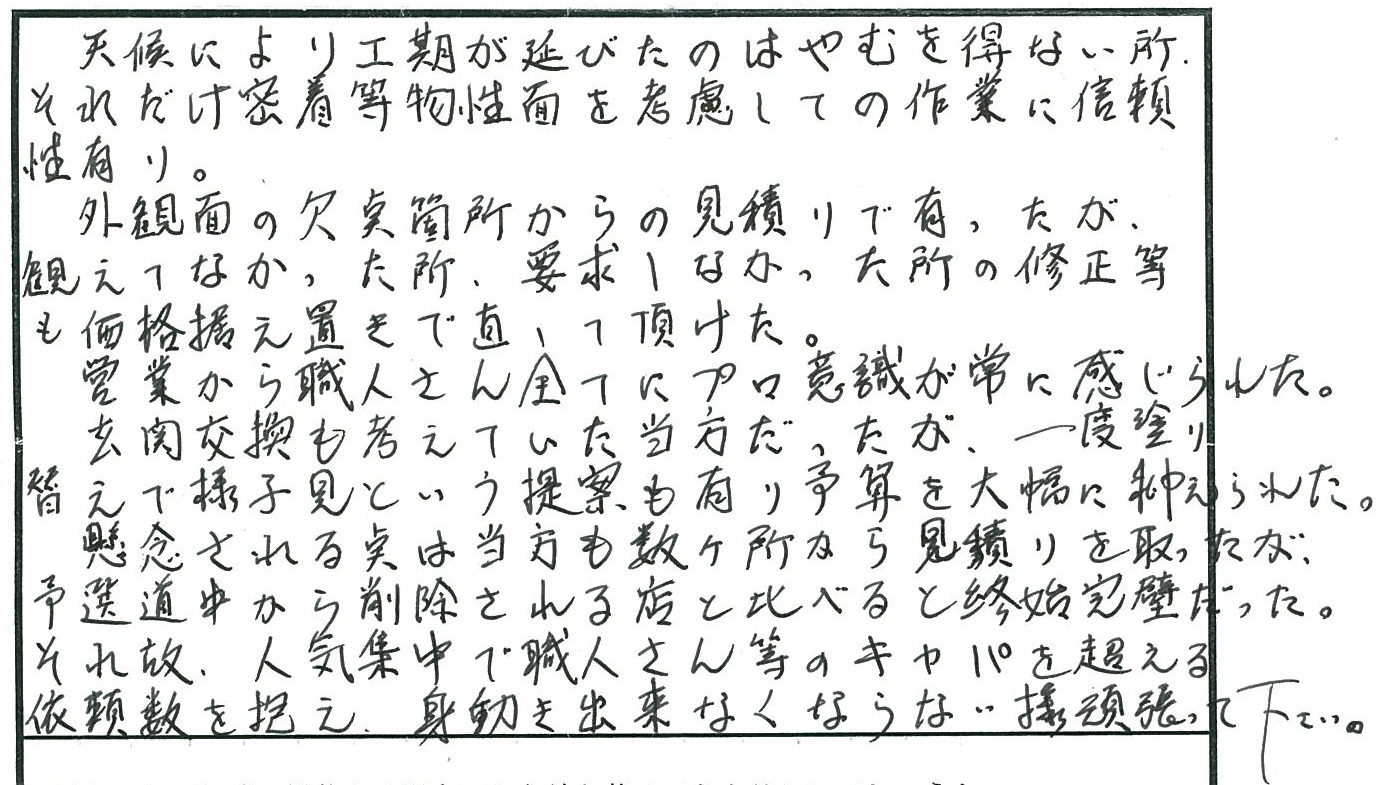 天候により工期が延びたのはやむを得ない所、
それだけ密着等物性面を考慮しての作業に信頼
性有り。
外観面の欠点箇所からの見積りで有ったが、
観えてなかった所、要求しなかった所の修正等
も価格据え置きで直して頂けた。
営業から職人さん全てにプロ意識が常に感じられた。
玄関交換も考えていた当方だったが、一度塗り
替えで様子見という提案も有り予算を大幅に抑えられた。
懸念される点は当方も数ヶ所から見積りを取ったが、
予選道中から削除される店と比べると終始完璧だった。
それ故、人気集中で職人さん等のキャパを超える
依頼数を抱え、身動き出来なくならない様頑張って下さい。